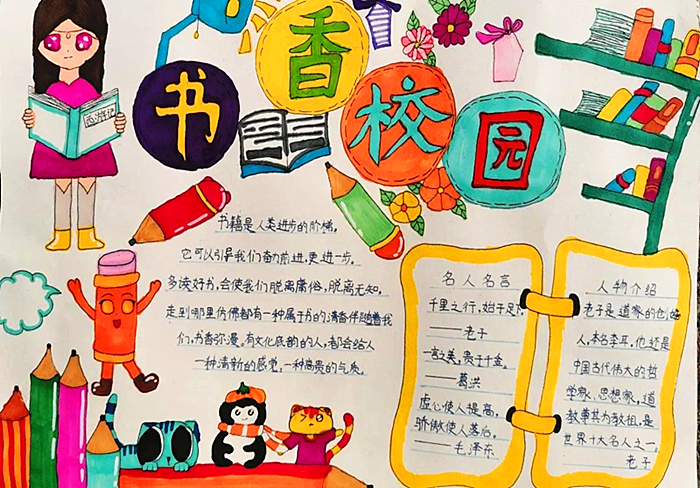 书香校园
西游记
书籍是人类进步的阶梯,
它可以引导我们奋力前进,更进一步。
多读好书,会使我们脱离庸俗,脱离无知。
走到哪里仿佛都有一种属于书的清香伴随着我
们,书香弥漫。有文化底韵的人,都会给人
一种清新的感觉,一种高贵的气质。
名人名言
千里之行,始于足下
——老子
一言之美,贵于千金。
——葛洪
虚心使人提高,
骄傲使人落后。
——毛泽东
人物介绍
老子是道家的创始
人,本名李耳,他还是
中国古代伟大的哲
学家、思想家,道
教尊其为教祖,是
世界十大名人之一。
——老子